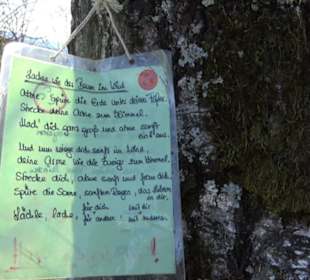 Lache wie der Baum im Wind
Atme Spüre die Erde unter deinen Füßen
Strecke deine Arme zum Himmel.
Mach' dich ganz groß und atme sanft
ein + aus.
Und nun wiege dich sanft im Wind,
deine Arme wie die Zweige zum Himmel.
Strecke dich, atme sanft und
Spüre die Sonne, sanften Regen, das Leben
in dir,
für dich mit dir
Lächle, lache, für andere! mit anderen